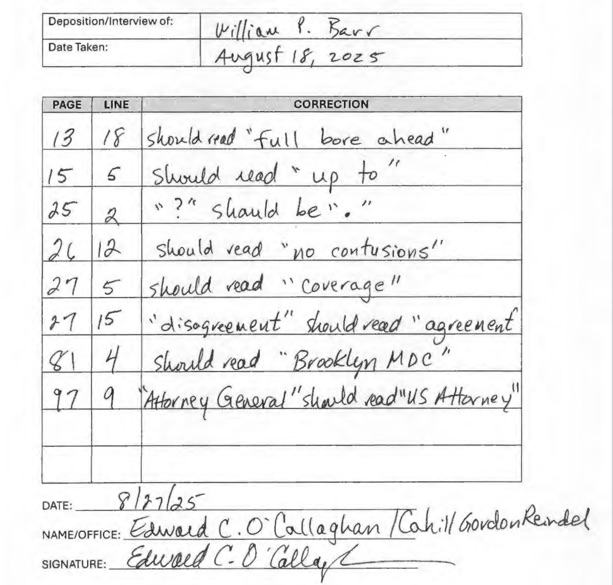 Deposition/Interview of: William P. Barr
Date Taken: August 18, 2025
PAGE LINE CORRECTION
13 18 should read "full bore ahead"
15 5 should read "up to"
25 2 "?" should be "."
26 12 should read "no contusions"
27 5 should read "coverage"
27 15 "disagreement" should read "agreement
81 4 should read "Brooklyn MDC"
97 9 "Attorney General" should read "US Attorney"
DATE: 8/27/25
NAME/OFFICE: Edward C. O'Callaghan / Cahill Gordon Reindel
SIGNATURE: Edward C. O'Callagh